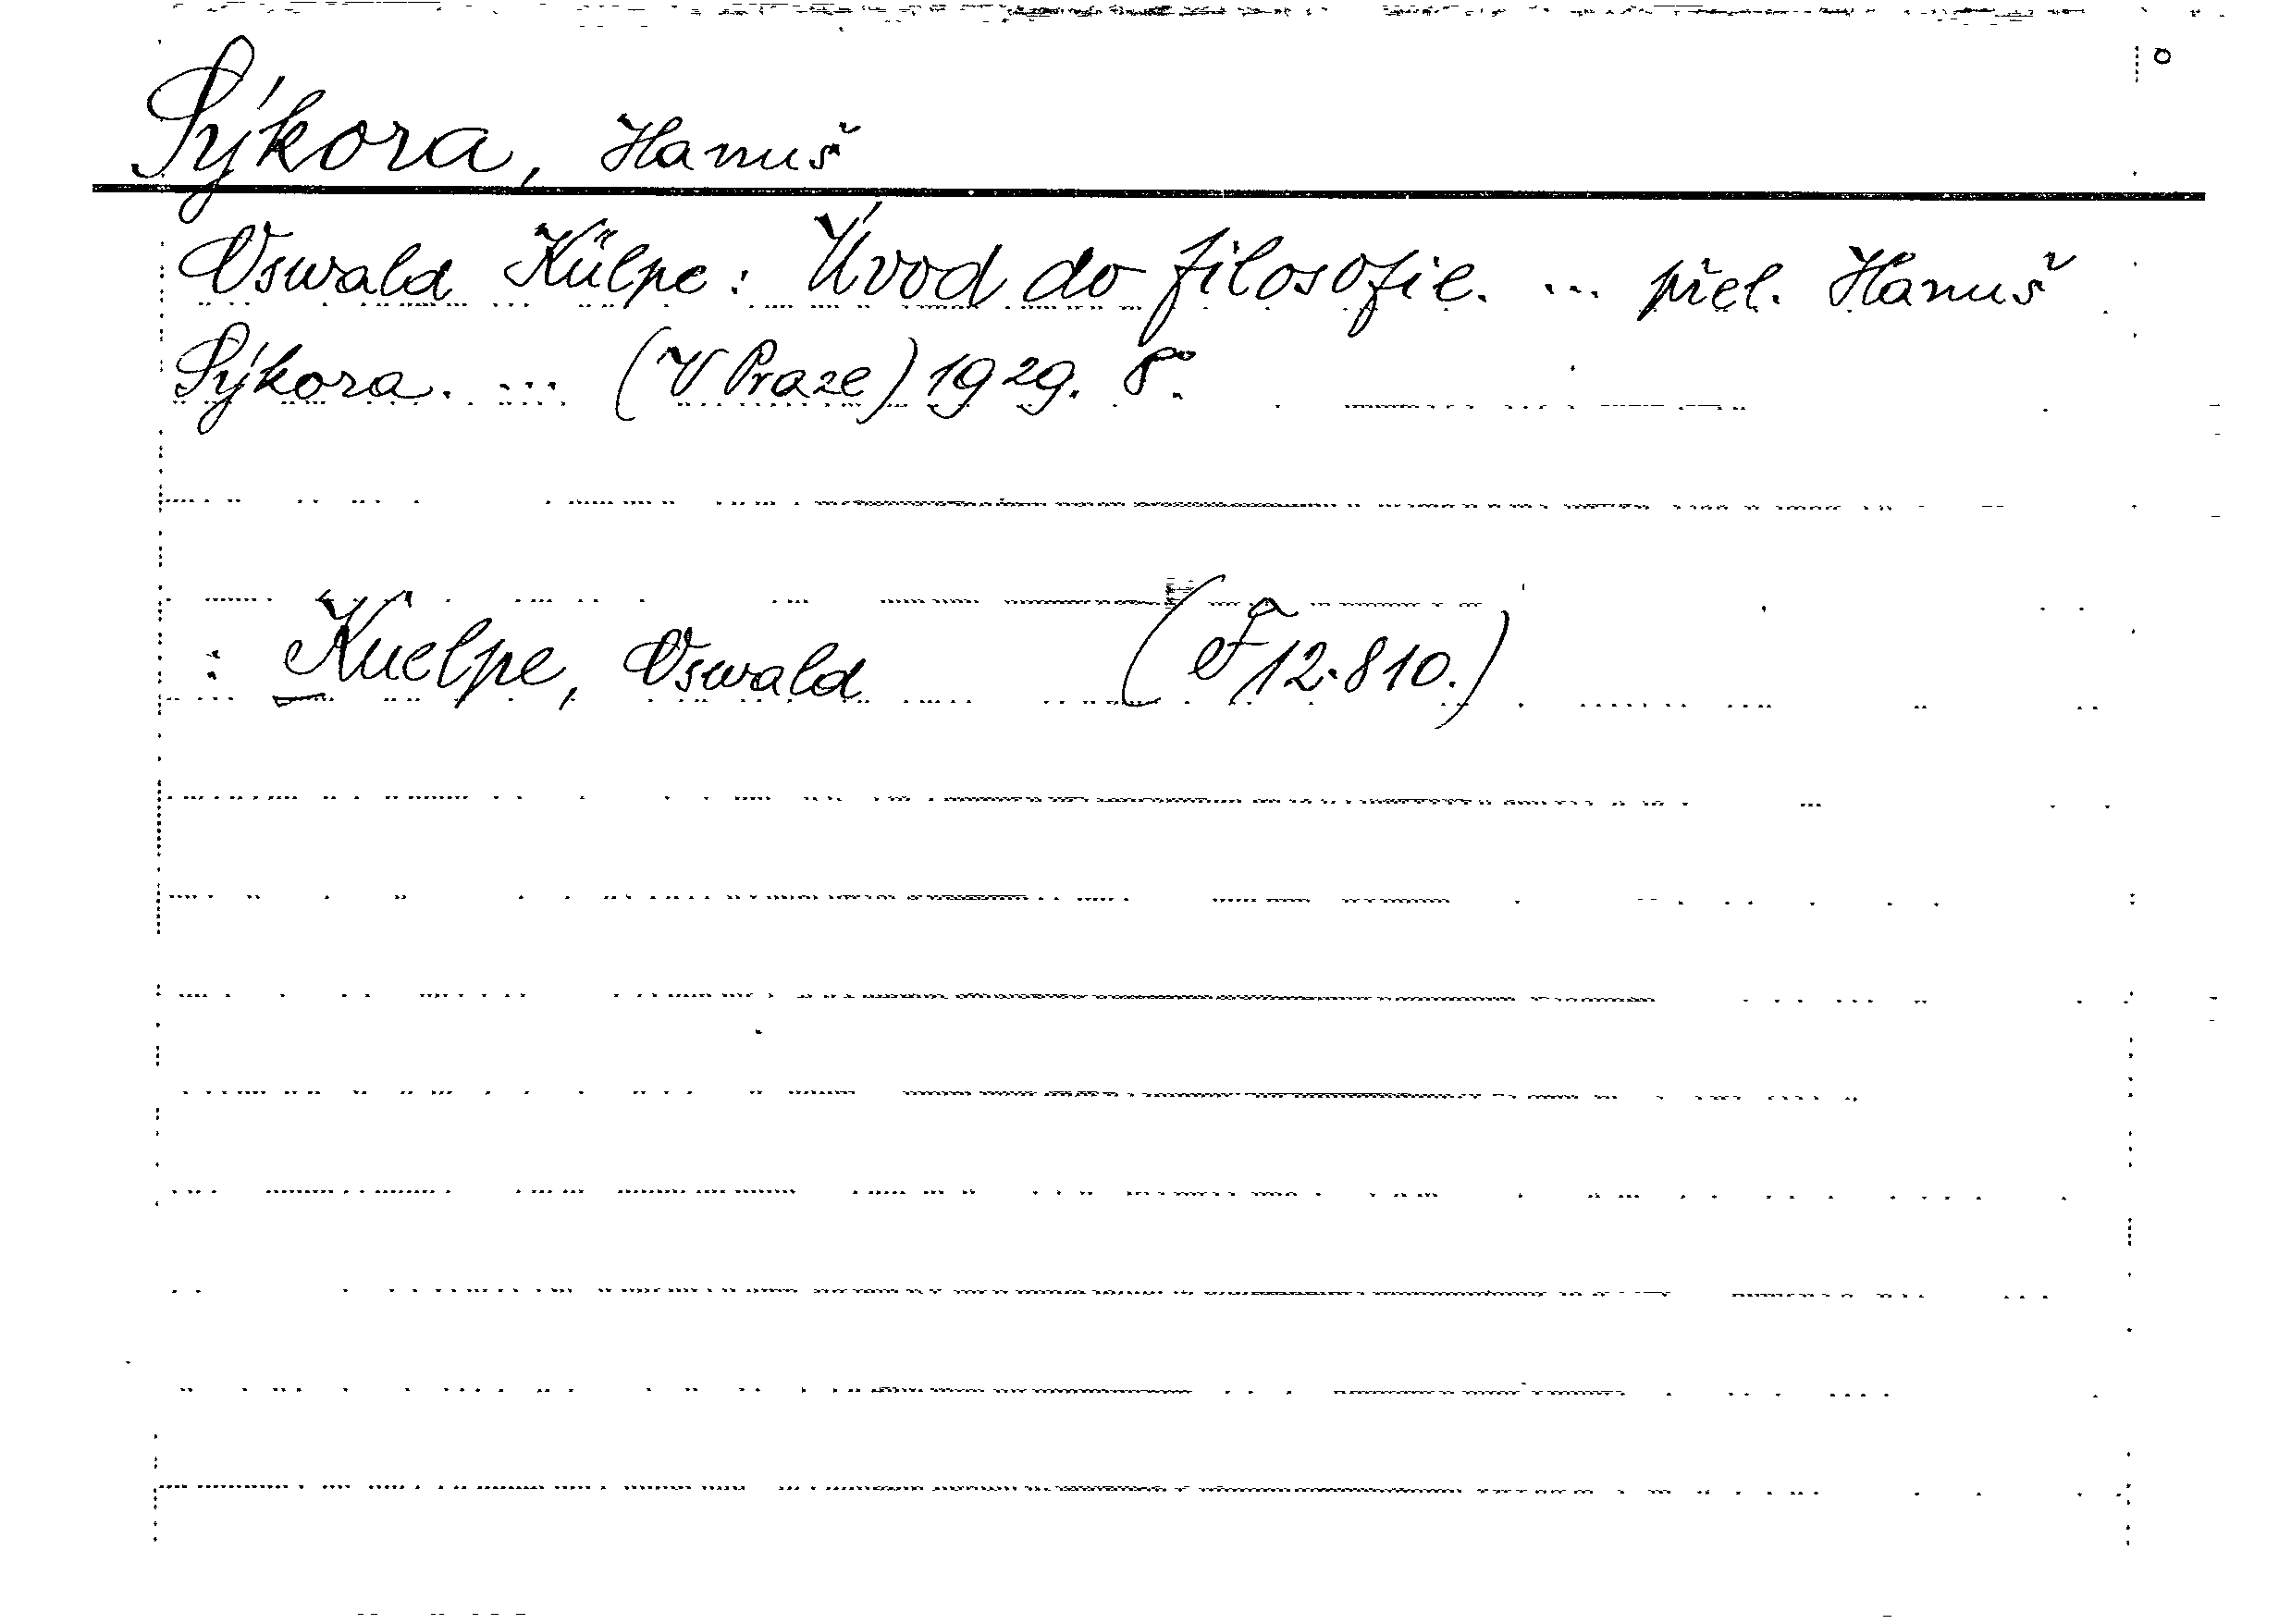 Sýkora, Hanuš
Oswald Külpe: Úvod do filosofie. ... přel. Hanuš
Sýkora. ... (V Praze) 1929. 8°.
: Kuelpe, Oswald (F 12.810.)